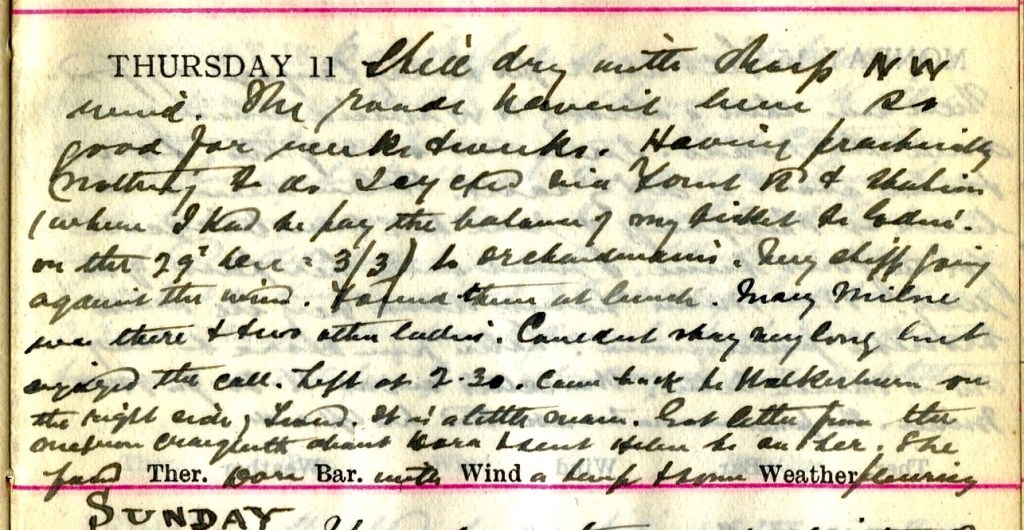 THURSDAY 11 Still dry with sharp NW
wind. The roads haven't been so
good for weeks & weeks. Having practically
nothing to do I cycled via Yount Rd & Station
(where I had to pay the balance of my ticket to
on the 29th = 3/3) to Orchardmains. Very stiff going
against the wind. Found them at lunch. Mary Milne
was there & two other ladies. Couldn't stay very long but
enjoyed the call. Left at 2.30. Came back to Walkerburn on
the right side of Tweed. It is a little nearer. Got letter from the
about Dora & sent Helen to see her. She
found Ther. Dora Bar. with Wind a temp & some Weather pleurisy
SUNDAY